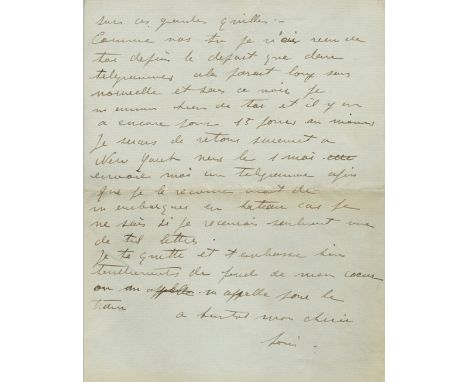 sur ces grandes quilles.-
Comme vas tu je n'ai recu de
toi depuis le depart que deux
telegrammes cela parait long sans
nouvelle et dans ce mois je
m ennui bien de toi et il y en
a encore pour 15 jours au moins
Je serais de retour surement a
New York vers le 1 mai
envoie moi un telegramme afin
que je le recoive avant de
m embarquer en bateau car je
ne sais si je recevrais seulement une
de tes lettres.
Je te quitte et t embrasse bien
tendrements du fond de mon coeur
on m appelle pour le
train
a bientot mon cherie
Louis.